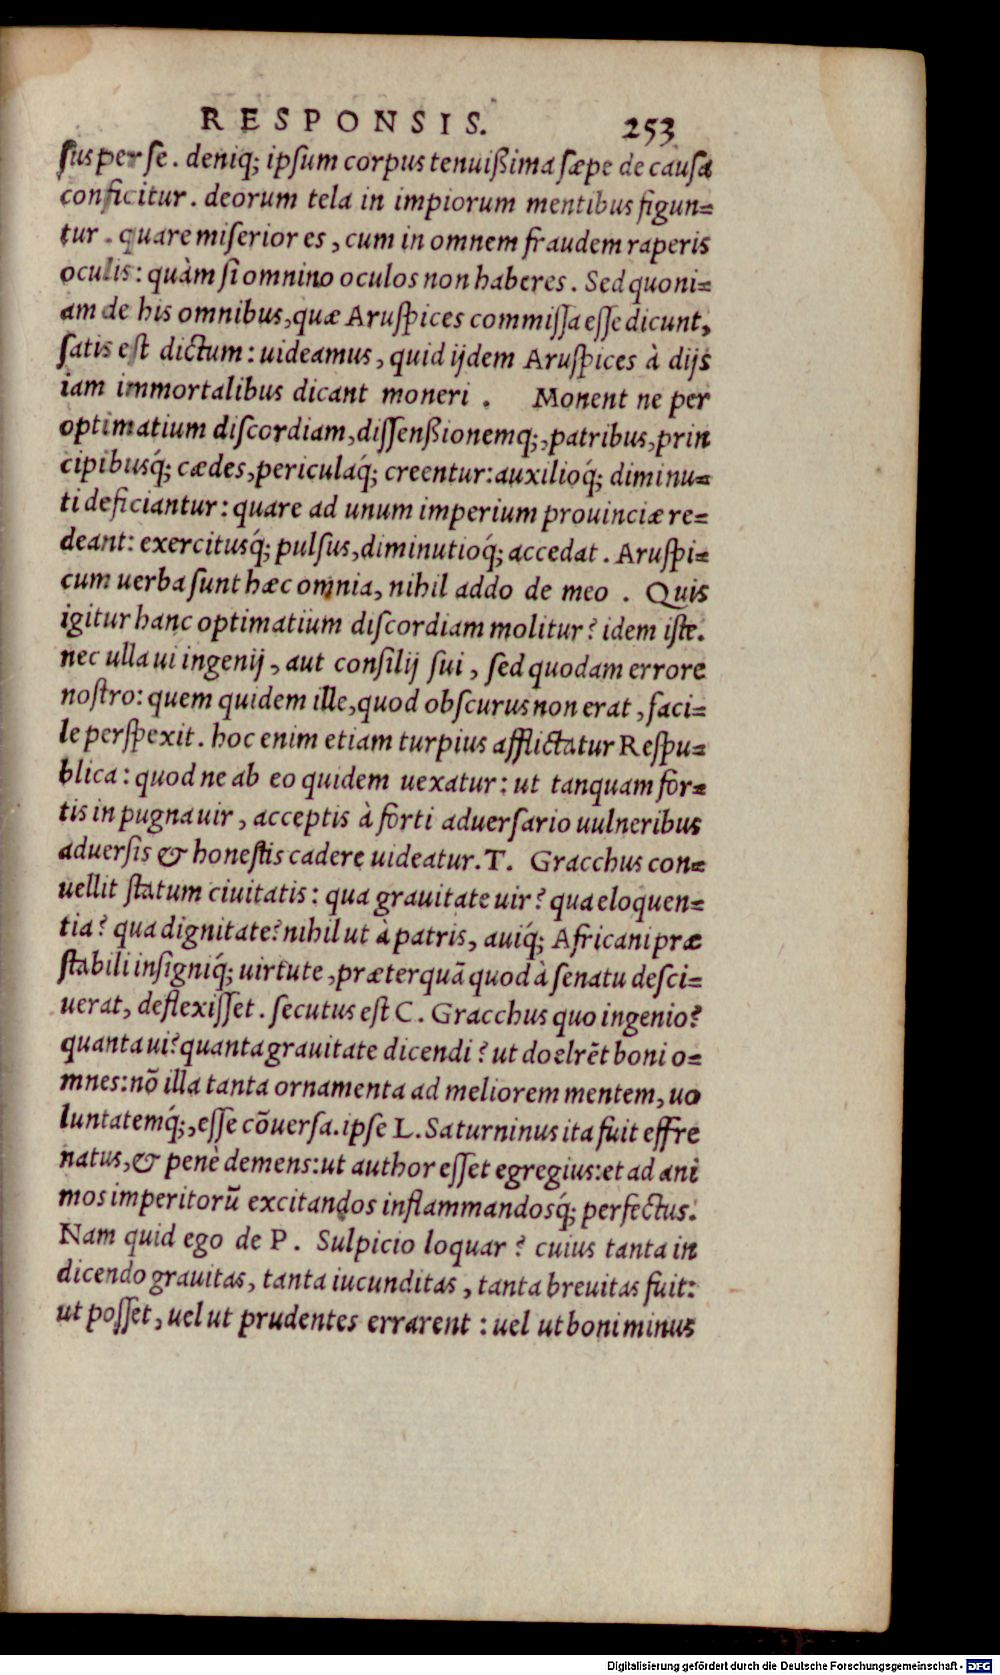 RESPONSIS. 253
sus per se. deniq; ipsum corpus tenuißima sæpe de causa
conficitur. deorum tela in impiorum mentibus figun=
tur. quare miserior es, cum in omnem fraudem raperis
oculis: quàm si omnino oculos non haberes. Sed quoni=
am de his omnibus, quæ Aruspices commissa esse dicunt,
satis est dictum: uideamus, quid ijdem Aruspices à dijs
iam immortalibus dicant moneri. Monent ne per
optimatium discordiam, dissenßionemq́;, patribus, prin
cipibusq́; cædes, periculaq́; creentur: auxilioq́; diminu=
ti deficiantur: quare ad unum imperium prouinciæ re=
deant: exercitusq́; pulsus, diminutioq́; accedat. Aruspi=
cum uerba sunt hæc omnia, nihil addo de meo. Quis
igitur hanc optimatium discordiam molitur? idem iste.
nec ulla ui ingenij, aut consilij sui, sed quodam errore
nostro: quem quidem ille, quod obscurus non erat, faci=
le perspexit. hoc enim etiam turpius afflictatur Respu=
blica: quod ne ab eo quidem uexatur: ut tanquam for=
tis in pugna uir, acceptis à forti aduersario uulneribus
aduersis & honestis cadere uideatur. T. Gracchus con=
uellit statum ciuitatis: qua grauitate uir? qua eloquen=
tia? qua dignitate? nihil ut à patris, auiq́; Africani præ
stabili insigniq́; uirtute, præterquã quod à senatu desci=
uerat, deflexisset. secutus est C. Gracchus quo ingenio?
quanta ui? quanta grauitate dicendi? ut do elrẽt boni o=
mnes: nõ illa tanta ornamenta ad meliorem mentem, uo
luntatemq́;, esse cõuersa. ipse L. Saturninus ita fuit effre
natus, & penè demens: ut author esset egregius: et ad ani
mos imperitorũ excitandos inflammandosq́; perfectus.
Nam quid ego de P. Sulpicio loquar? cuius tanta in
dicendo grauitas, tanta iucunditas, tanta breuitas fuit:
ut posset, uel ut prudentes errarent: uel ut boni minus
Digitalisierung gefördert durch die Deutsche Forschungsgemeinschaft - DFG